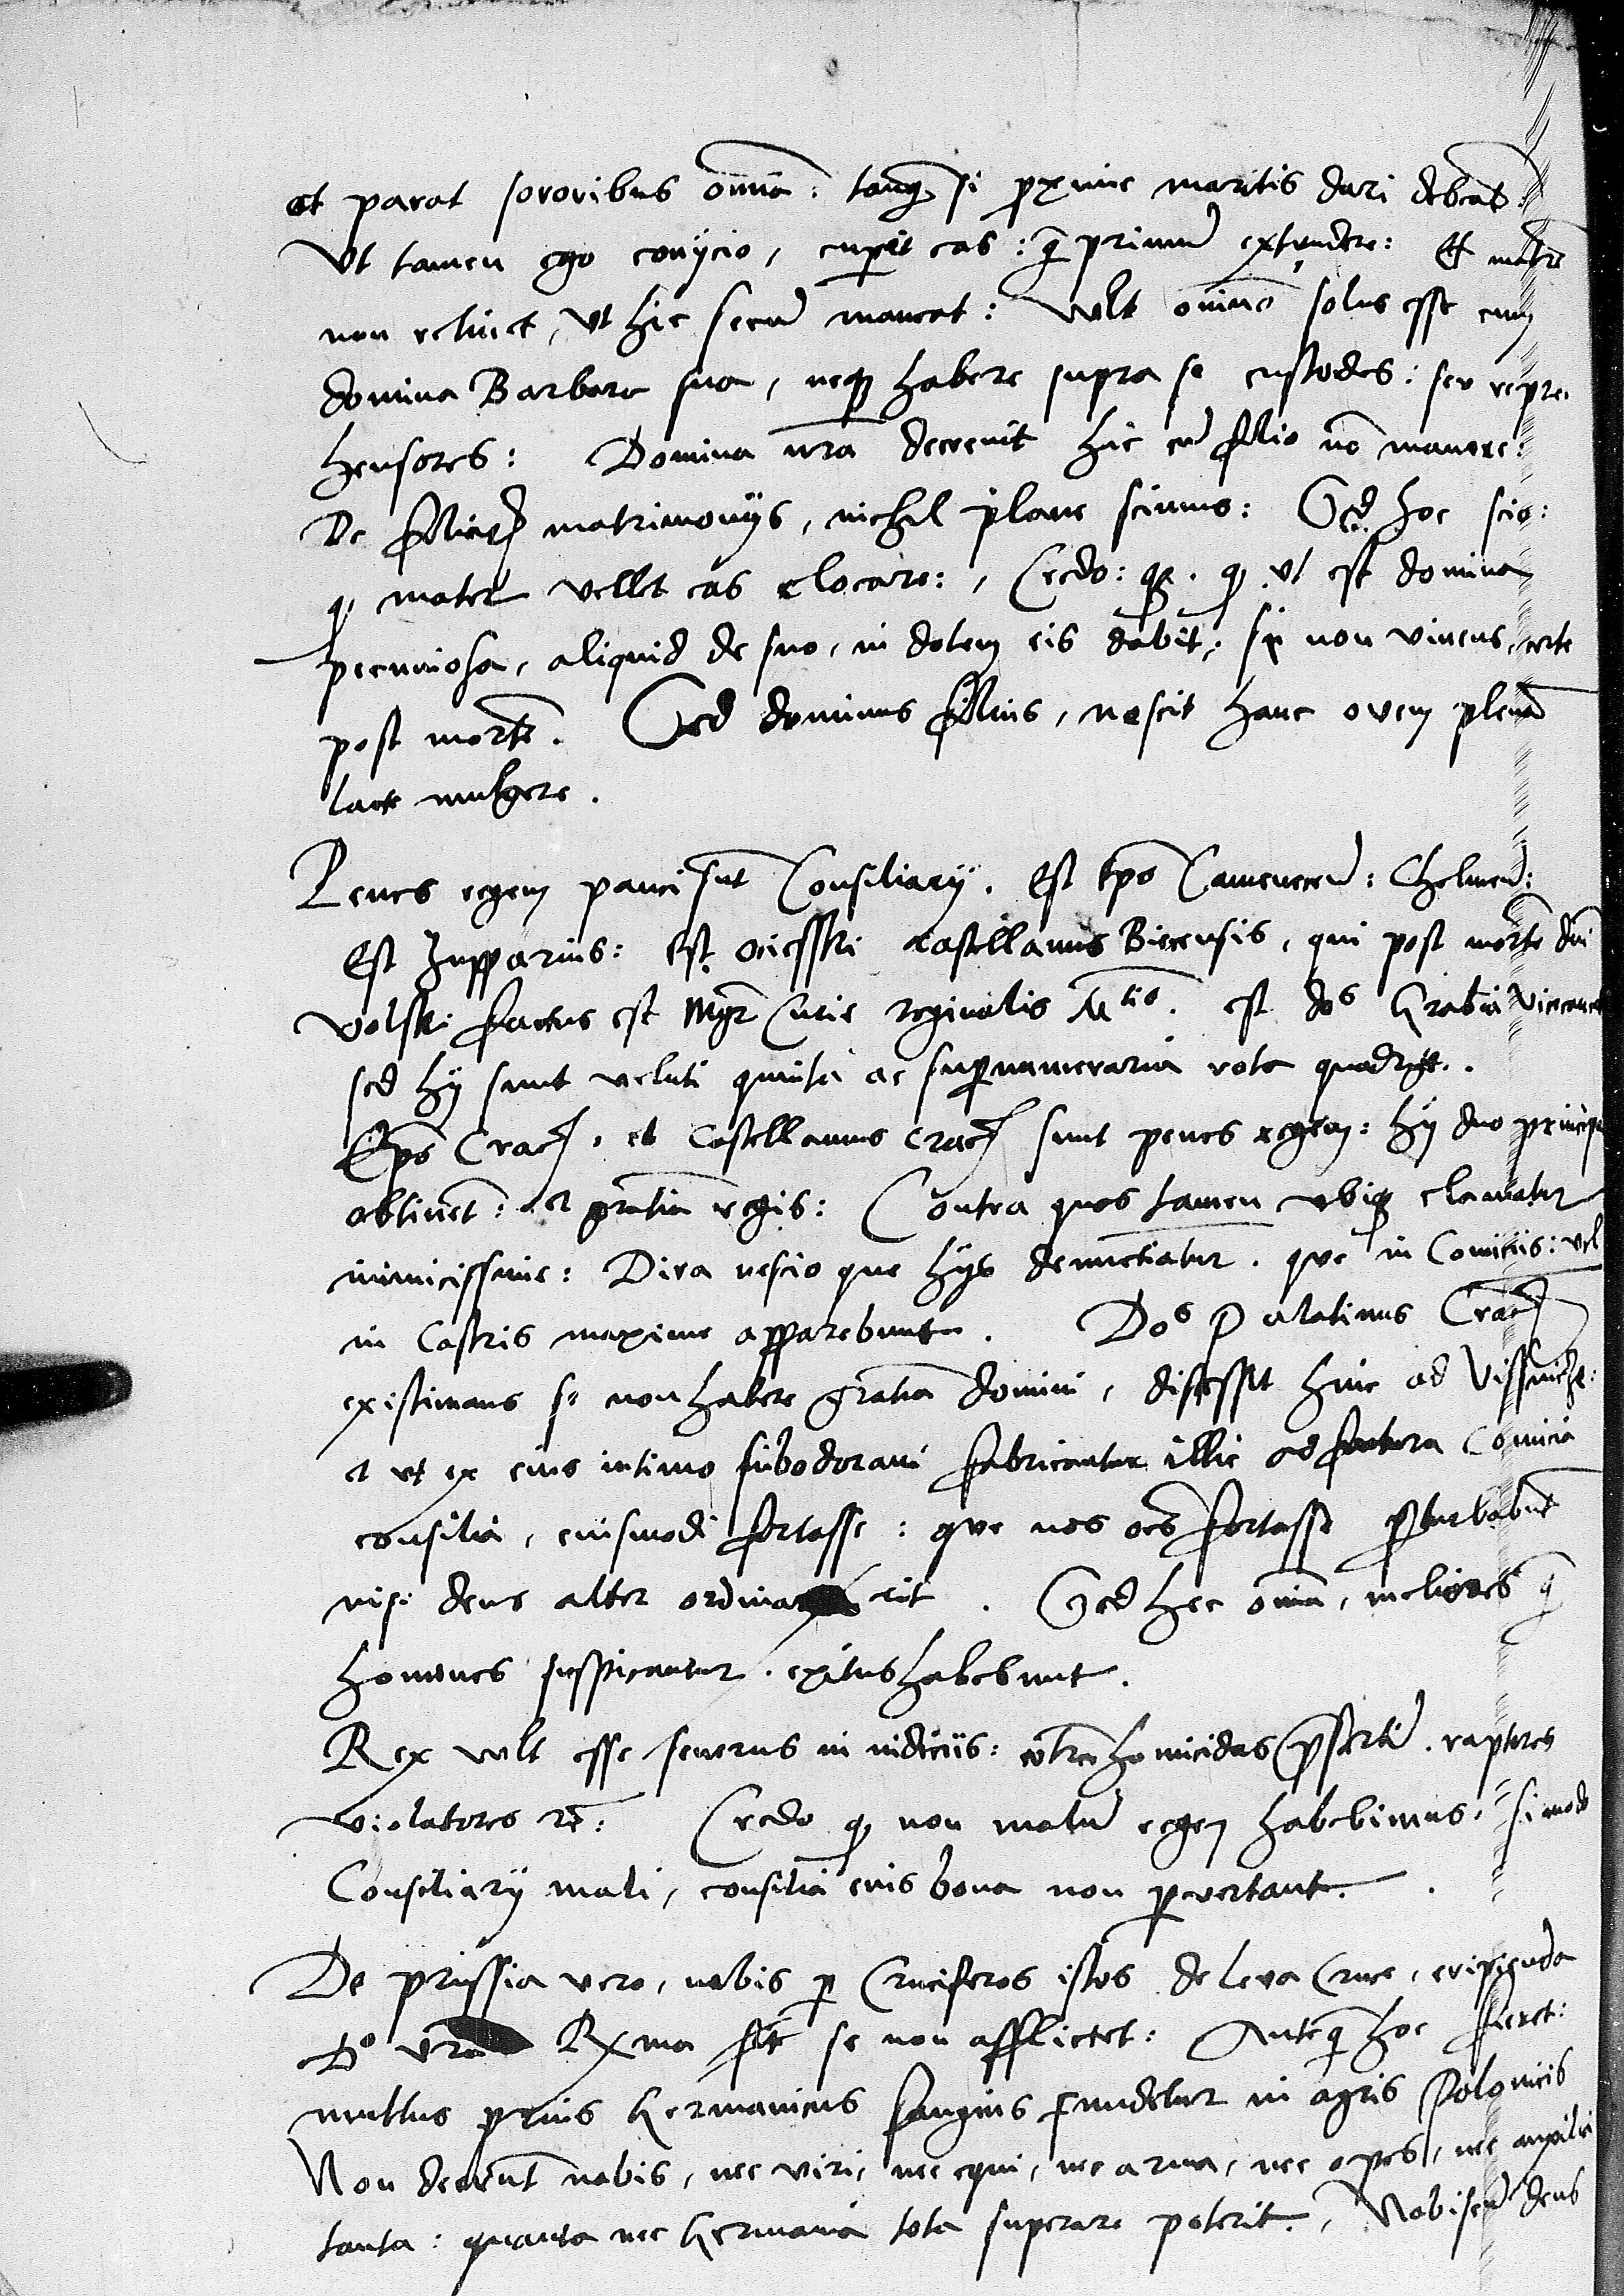 et parat sororibus omnia: tanq̃ si proxime maritis dari debeant:
Ut tamen ego conÿcio, cupit eas: q̃ primum extrudere: Et matrẽ
non retinet, Ut hic secum maneat: Vult omnino solus esse cum
domina Barbara sua, neq; habere supra se custodes: seu repre,
hensores: Domina nrã decrevit hic cũ filio nõ manere:
De filiarũ matrimonÿs, nichil plane scimus: Sed hoc scio:
q, mater vellet eas elocare:, Credo: q, ut est domina
pecuniosa, aliquid de suo, in dotem eis dabit: si non vivens, certe
post mortẽ. Sed dominus filius, nescit hanc ovem plenã
lacte mulgere.
Penes regem pauci sunt Consiliarÿ. Est Ep̃s Camenecen̄: Chelmen̄:
Est Zupparius: Est castellanus Biecensis, qui post mortẽ dñi
Volski factus est Mgr̃ Curie reginalis Mtis. est dns Grabia vicecanc
sed hÿ sunt veluti quinta ac supernumeraria rota quadrige.
Ep̃s Crac̃. et Castellanus Crac̃ sunt penes regem: hÿ duo principa
obtinent: et gratia regis: Contra quos tamen ubiq; clamatur
inimicissime: Dira nescio que hÿs denunctiatur. que in Comiciis: vel
in Castris maxime apparebunt. Dns Palatinus Crac̃
existimans se non habere gratiã domini, discessit hinc ad Vissnicze:
et ut ex eius intimo subodoravi fabricantur illic ad futura Comicia
consilia, eiusmodi fortasse: que nos oẽs fortasse perturbabunt
nisi deus aliter ordinarit. Sed hec omnia, meliores q̃
homines suspicantur. exitus habebunt.
Rex vult esse severus in iudiciis: contra homicidas p̃sertim. raptores
violatores etc: Credo q, non malum regem habebimus. si modo
Consiliarÿ mali, consilia eius bona non pervertant.
De prussia vero, nobis per Cruciferos istos de leva Cruce, eripienda
Do vrã Rxma P̃te se non afflictet: Anteq̃ hoc fieret:
multus prius Germanicus sanguis fundetur in agris Polonicis
Non deerunt nobis, nec viri, nec equi, nec arma, nec opes, nec auxilia
tanta: quanta nec Germania tota superare poterit., Nobiscũ deus